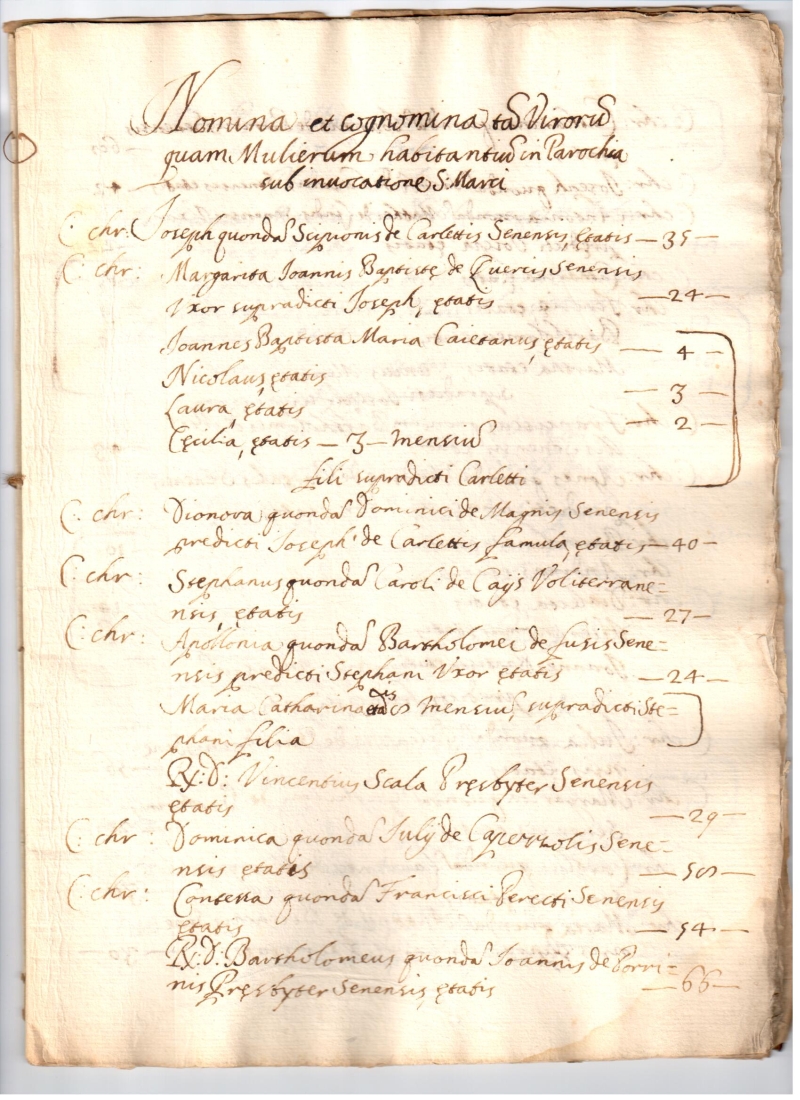 Nomina et cognomina tā Virorū
quam Mulierum habitantiū in Parochia
sub invocatione S: Marci
C: chr: Joseph quondā Scipionis de Carlettis Senensis, ętatis — 35 —
C: chr: Margarita Joannis Baptistę de Quercis Senensis
Uxor supradicti Joseph, ętatis — 24 —
Joannes Baptista Maria Caietanus, ętatis — 4 —
Nicolaus, ętatis — 3 —
Laura, ętatis — 2 —
Cęcilia, ętatis — 3 — mensiū
filii supradicti Carletti
C: chr: Dionora quondā Dominici de Magnis Senensis
predicti Joseph de Carlettis famula, ętatis — 40 —
C: chr: Stephanus quondā Caroli de Caijs Voliterrane=
nsis, ętatis — 27 —
C: chr: Apollonia quondā Bartholomei de Fusis Sene=
nsis predicti Stephani Uxor ętatis — 24 —
Maria Catharina ętatis mensiū, supradicti Ste=
phani filia
R: D: Vincentius Scala Pręsbyter Senensis
ętatis — 29 —
C: chr: Dominica quondā Julij de Sene=
nsis ętatis — 50 —
C: chr: Contessa quondā Francisci Perecti Senensis
ętatis — 54 —
R: D: Bartholomeus quondā Joannis de Porri=
nis Pręsbyter Senensis, ętatis — 66 —
116